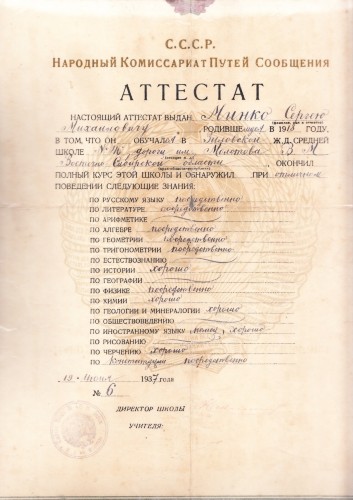 С.С.С.Р.
Народный Комиссариат Путей Сообщения
АТТЕСТАТ
Настоящий аттестат выдан Минко Сергею
Михайловичу родившемуся в 1918 году,
в том, что он обучался в Зиловской ж.д. средней
школе № 16 дороги им. Молотова
Восточно Сибирской области окончил
полный курс этой школы и обнаружил при отличном
поведении следующие знания:
по русскому языку посредственно
по литературе посредственно
по арифметике
по алгебре посредственно
по геометрии посредственно
по тригонометрии посредственно
по естествознанию
по истории хорошо
по географии
по физике посредственно
по химии хорошо
по геологии и минералогии хорошо
по обществоведению
по иностранному языку хорошо
по рисованию
по черчению хорошо
по Конституции посредственно
19 июня 1937 года
№ 6
Директор школы
Учителя: